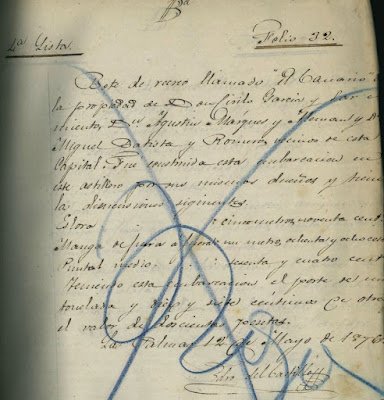 4ª Lista.
Folio 32.
Bote de recreo llamado "El Canario"
la propiedad de Don Cirilo Garcia y
miento, Dn Agustin Marques y Aleman y
Miguel Batista y Romero, vecinos de esta
Capital. Fue construida esta embarcacion en
este astillero por sus mismos dueños y tiene
las dimensiones siguientes.
Eslora cinco metros, noventa cent
Manga de fuera a fuera un metro, ochenta y ocho cent
Puntal medio senta y cuatro cent
Teniendo esta embarcacion el porte de una
tonelada y diez y siete centimos de otra
el valor de doscientas pesetas.
Las Palmas 12 de Mayo de 1876
del Castillo